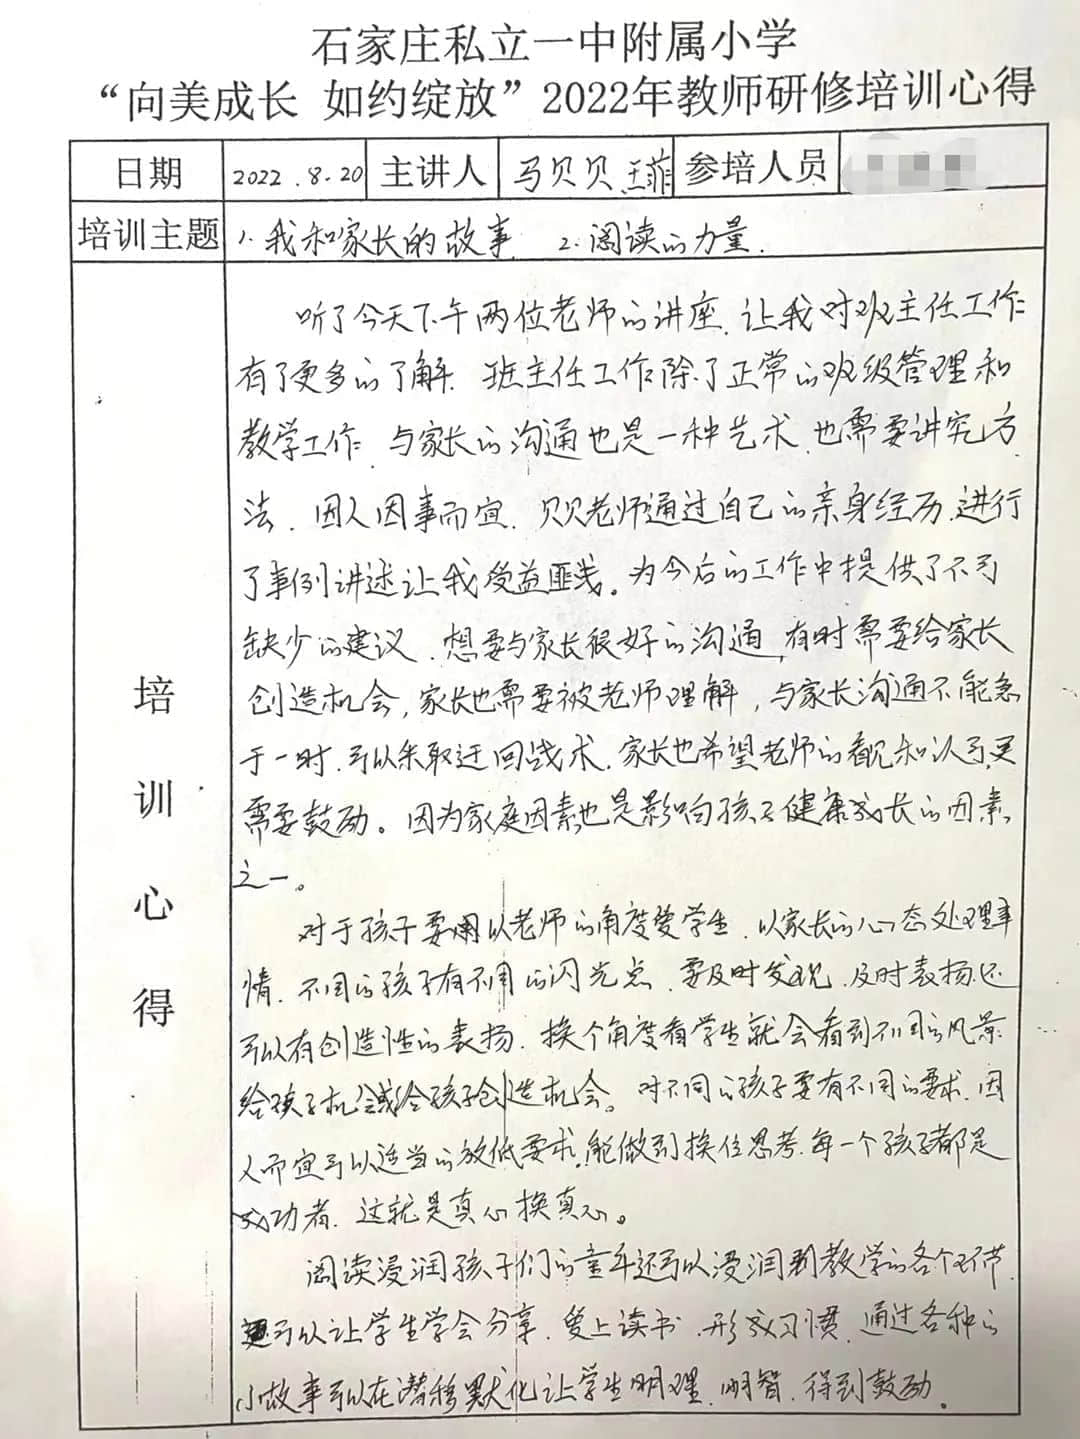 石家庄私立一中附属小学
“向美成长 如约绽放”2022年教师研修培训心得
日期 2022.8.20 主讲人 马贝贝 王菲 参培人员
培训主题 1.我和家长的故事 2.阅读的力量.
培训心得
听了今天下午两位老师的讲座,让我对班主任工作
有了更多的了解.班主任工作除了正常的班级管理和
教学工作.与家长的沟通也是一种艺术.也需要讲究方
法.因人因事而宜.贝贝老师通过自己的亲身经历.进行
了事例讲述让我受益匪浅。为今后的工作中提供了不可
缺少的建议.想要与家长很好的沟通,有时需要给家长
创造机会,家长也需要被老师理解,与家长沟通不能急
于一时.可以采取迂回战术.家长也希望老师的看见和认可,更
需要鼓励。因为家庭因素也是影响孩子健康成长的因素
之一。
对于孩子要用以老师的角度爱学生.以家长的心态处理事
情.不同的孩子有不同的闪光点.要及时发现.及时表扬.还
可以有创造性的表扬.换个角度看学生就会看到不同的风景
给孩子机会或给孩子创造机会。对不同的孩子要有不同的要求.因
人而宜可以适当的放低要求.能做到换位思考.每一个孩子都是
成功者.这就是真心换真心。
阅读浸润孩子们的童年还可以浸润到教学的各个环节.
更可以让学生学会分享.爱上读书.形成习惯.通过各种的
小故事可以在潜移默化让学生明理.明智.得到鼓励.